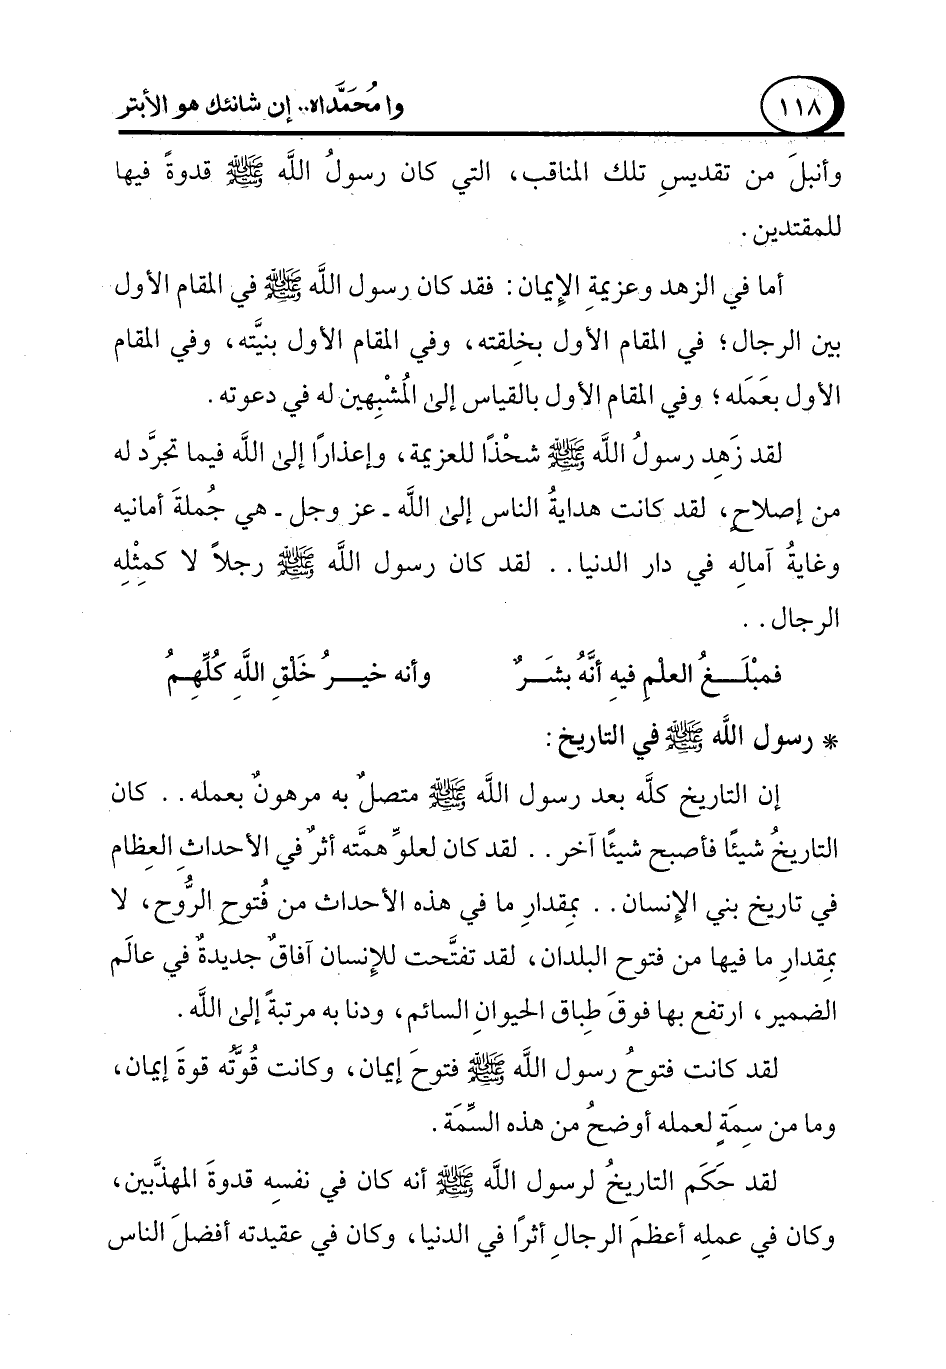 ١١٨
وا مُحَمَّداه.. إن شانئك هو الأبتر
وأنبلَ من تقديسِ تلك المناقب، التي كان رسولُ اللَّه ﷺ قدوةً فيها
للمقتدين.
أما في الزهد وعزيمةِ الإِيمان: فقد كان رسول اللَّه ﷺ في المقام الأول
بين الرجال؛ في المقام الأول بخِلقته، وفي المقام الأول بنيَّته، وفي المقام
الأول بعَمَله؛ وفي المقام الأول بالقياس إلىٰ المُشْبِهين له في دعوته.
لقد زَهِد رسولُ اللَّه ﷺ شحْذًا للعزيمة، وإعذارًا إلىٰ اللَّه فيما تجرَّد له
من إصلاحٍ، لقد كانت هدايةُ الناس إلىٰ اللَّه ـ عز وجل ـ هي جُملةَ أمانيه
وغايةُ آمالِه في دار الدنيا.. لقد كان رسول اللَّه ﷺ رجلاً لا كمِثْلِه
الرجال..
فمبْلَــغُ العلْمِ فيهِ أنَّهُ بشَــرٌ وأنه خيــرُ خَلْقِ اللَّهِ كُلِّهِمُ
* رسول اللَّه ﷺ في التاريخ:
إن التاريخ كلَّه بعد رسول اللَّه ﷺ متصلٌ به مرهونٌ بعمله.. كان
التاريخُ شيئًا فأصبح شيئًا آخر.. لقد كان لعلوِّ همَّته أثرٌ في الأحداثِ العِظام
في تاريخ بني الإنسان.. بمِقدارِ ما في هذه الأحداث من فُتوحِ الرُّوح، لا
بمِقدارِ ما فيها من فتوح البلدان، لقد تفتَّحت للإنسان آفاقٌ جديدةٌ في عالَم
الضمير، ارتفع بها فوقَ طِباق الحيوانِ السائم، ودنا به مرتبةً إلىٰ اللَّه.
لقد كانت فتوحُ رسول اللَّه ﷺ فتوحَ إيمان، وكانت قُوَّتُه قوةَ إيمان،
وما من سِمَةٍ لعمله أوضحُ من هذه السِّمَة.
لقد حَكَم التاريخُ لرسول اللَّه ﷺ أنه كان في نفسِه قدوةَ المهذَّبين،
وكان في عملِه أعظمَ الرجالِ أثرًا في الدنيا، وكان في عقيدته أفضلَ الناس